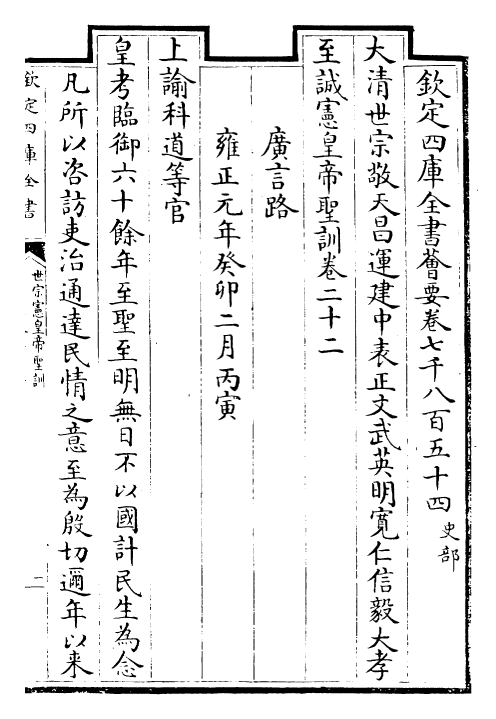 欽定四庫全書薈要卷七千八百五十四 史部
大清世宗敬天昌運建中表正文武英明寬仁信毅大孝
至誠憲皇帝聖訓卷二十二
廣言路
雍正元年癸卯二月丙寅
上諭科道等官
皇考臨御六十餘年至聖至明無日不以國計民生為念
凡所以咨訪吏治通達民情之意至為殷切邇年以来
欽定四庫全書
世宗憲皇帝聖訓
二